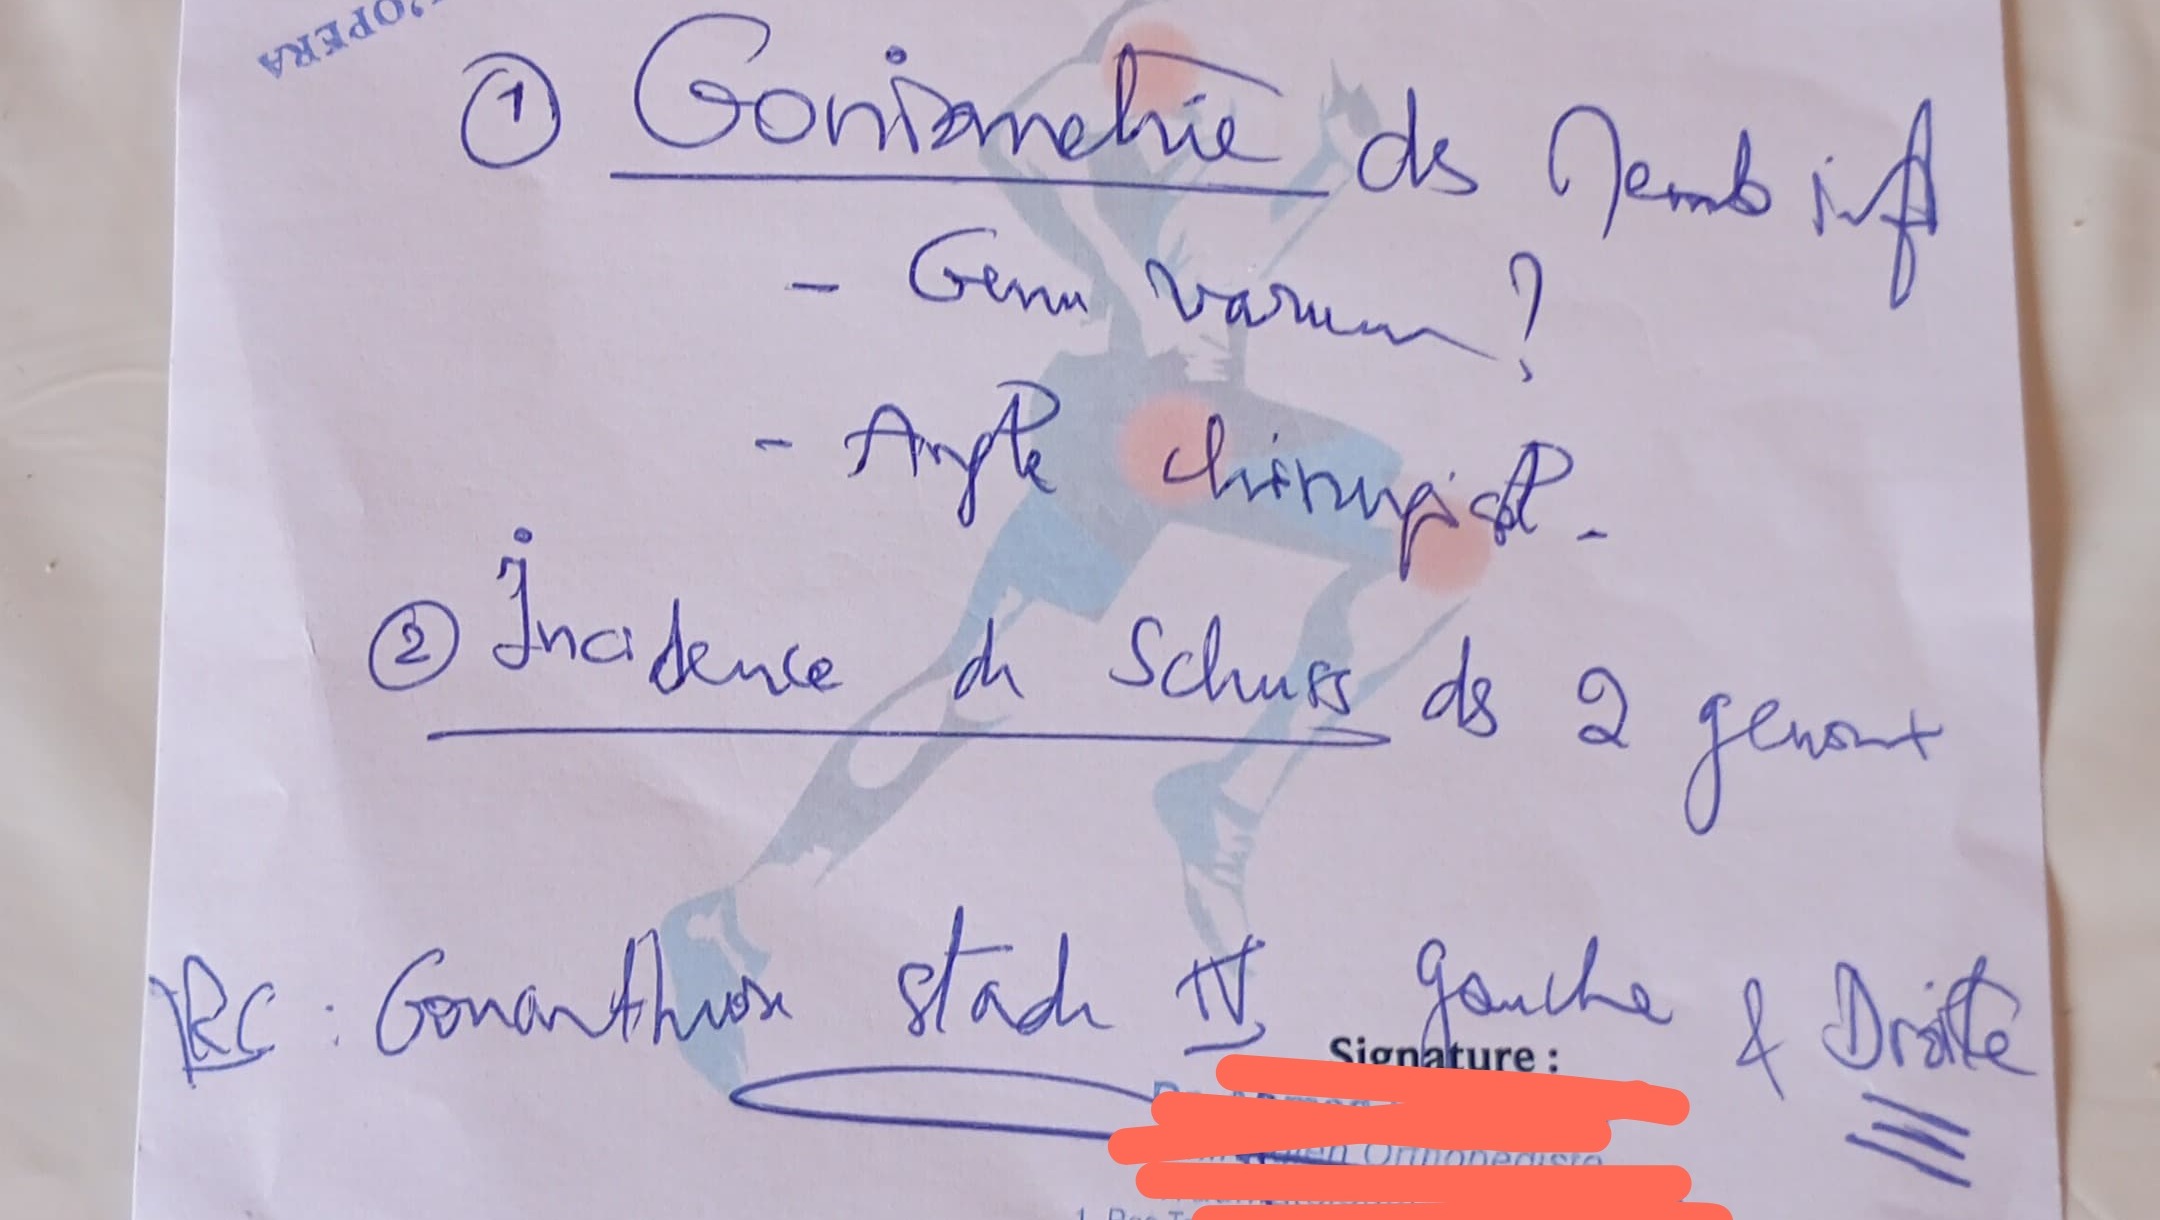 OPERA
① Goniometrie ds Memb inf
- Genu varum ?
- Angle chirurgical -
② Incidence de Schuss ds 2 genoux
RC : Gonarthrose stade IV gauche & Droite
Signature :
Orthopédiste